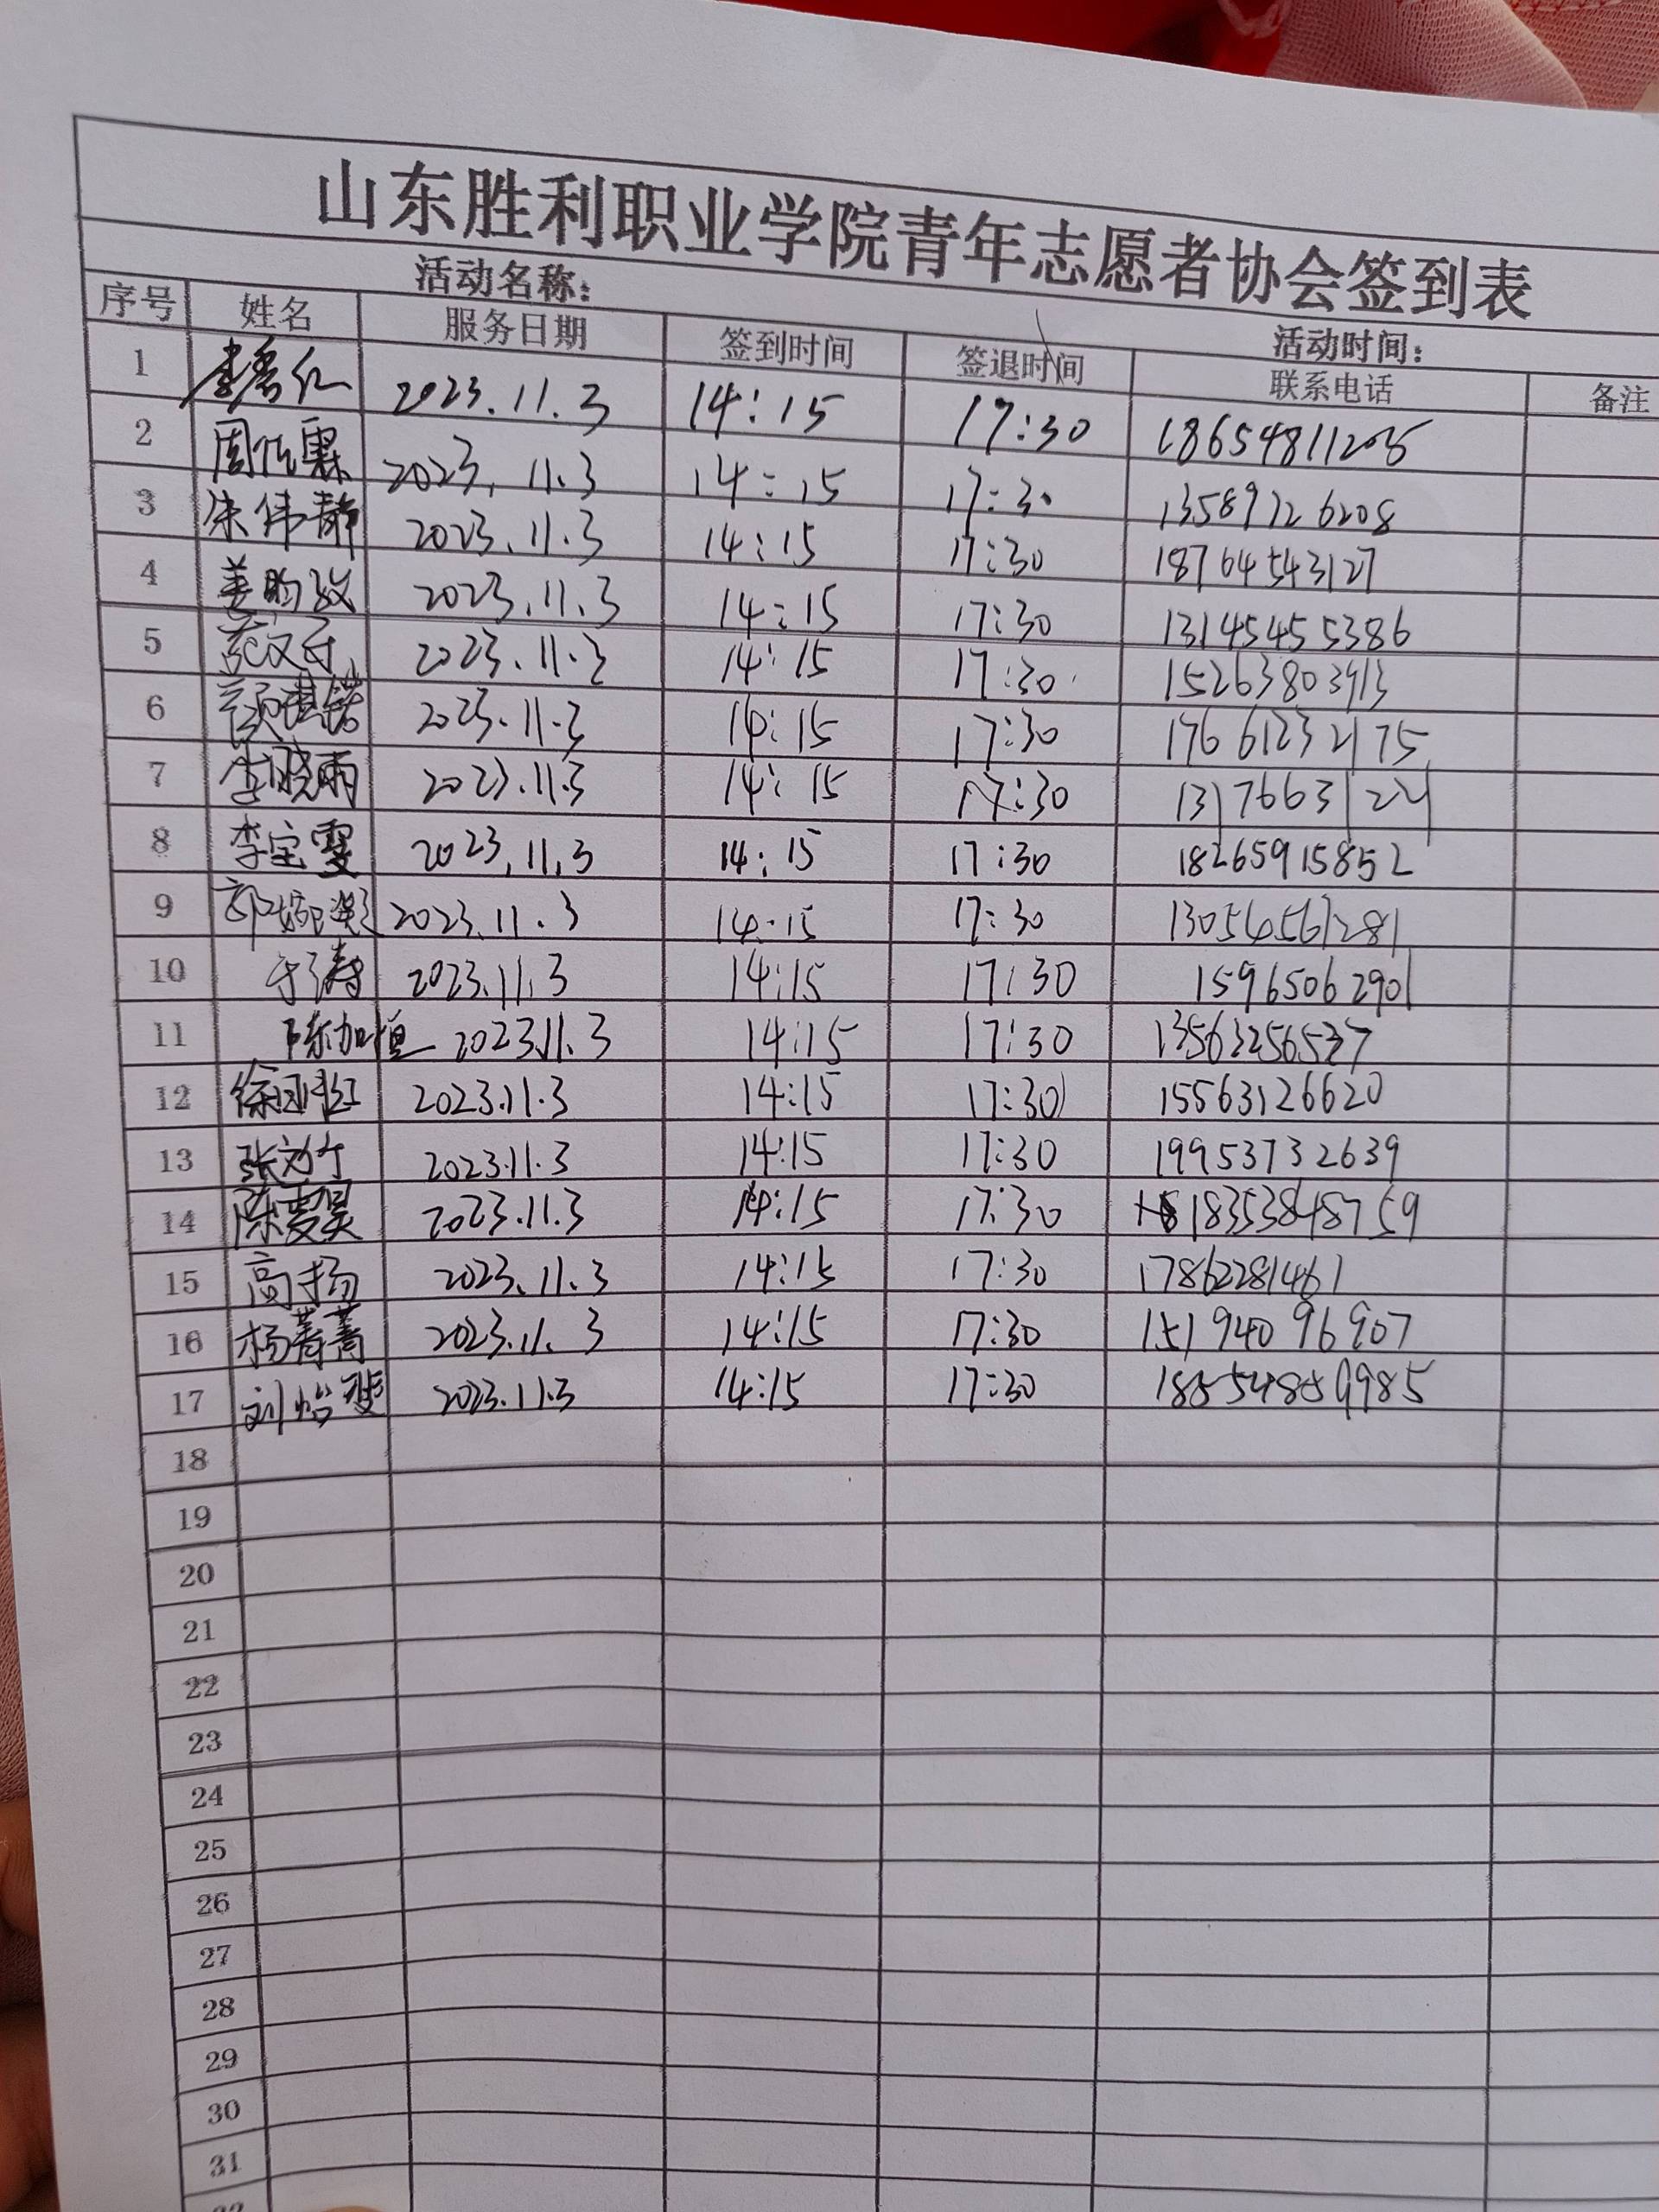 山东胜利职业学院青年志愿者协会签到表
活动名称： 活动时间：
序号 姓名 服务日期 签到时间 签退时间 联系电话 备注
1 2023.11.3 14:15 17:30
2 2023.11.3 14:15 17:30 13589726208
3 朱伟静 2023.11.3 14:15 17:30 18764543127
4 2023.11.3 14:15 17:30 13145455386
5 2023.11.3 14:15 17:30 15263803913
6 2023.11.3 14:15 17:30 17661232175
7 李晓雨 2023.11.3 14:15 17:30 13176631224
8 李宝雯 2023.11.3 14:15 17:30 18265915852
9 2023.11.3 14:15 17:30 13054561281
10 于涛 2023.11.3 14:15 17:30 15965062901
11 陈加恒 2023.11.3 14:15 17:30 13563256537
12 2023.11.3 14:15 17:30 15563126620
13 2023.11.3 14:15 17:30 19953732639
14 2023.11.3 14:15 17:30 18353848759
15 高扬 2023.11.3 14:15 17:30 17862281461
16 杨菁菁 2023.11.3 14:15 17:30 15194096907
17 刘怡斐 2023.11.3 14:15 17:30
18
19
20
21
22
23
24
25
26
27
28
29
30
31